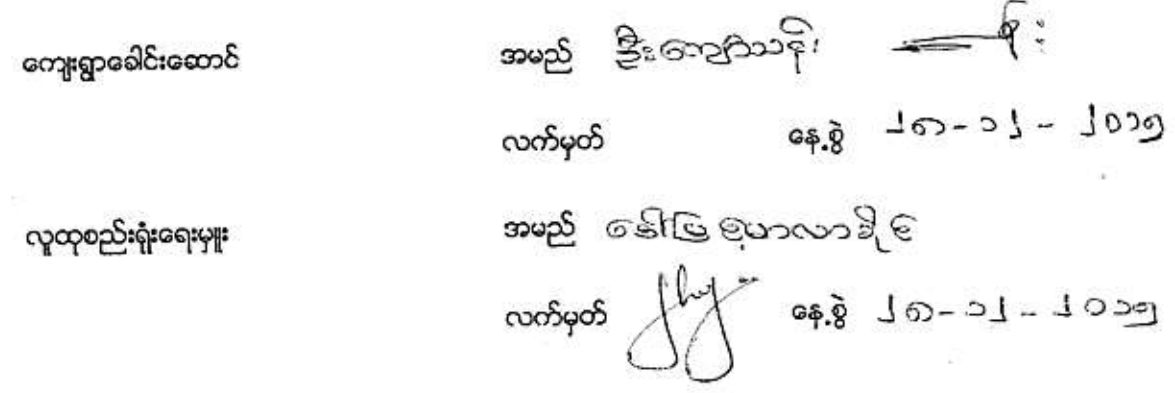 ကျေးရွာခေါင်းဆောင် အမည် ဦးကျော်သန်း
လက်မှတ် နေ့စွဲ ၂၈-၁၂-၂၀၁၅
လူထုစည်းရုံးရေးမှူး အမည်
လက်မှတ် နေ့စွဲ ၂၈-၁၂-၂၀၁၅